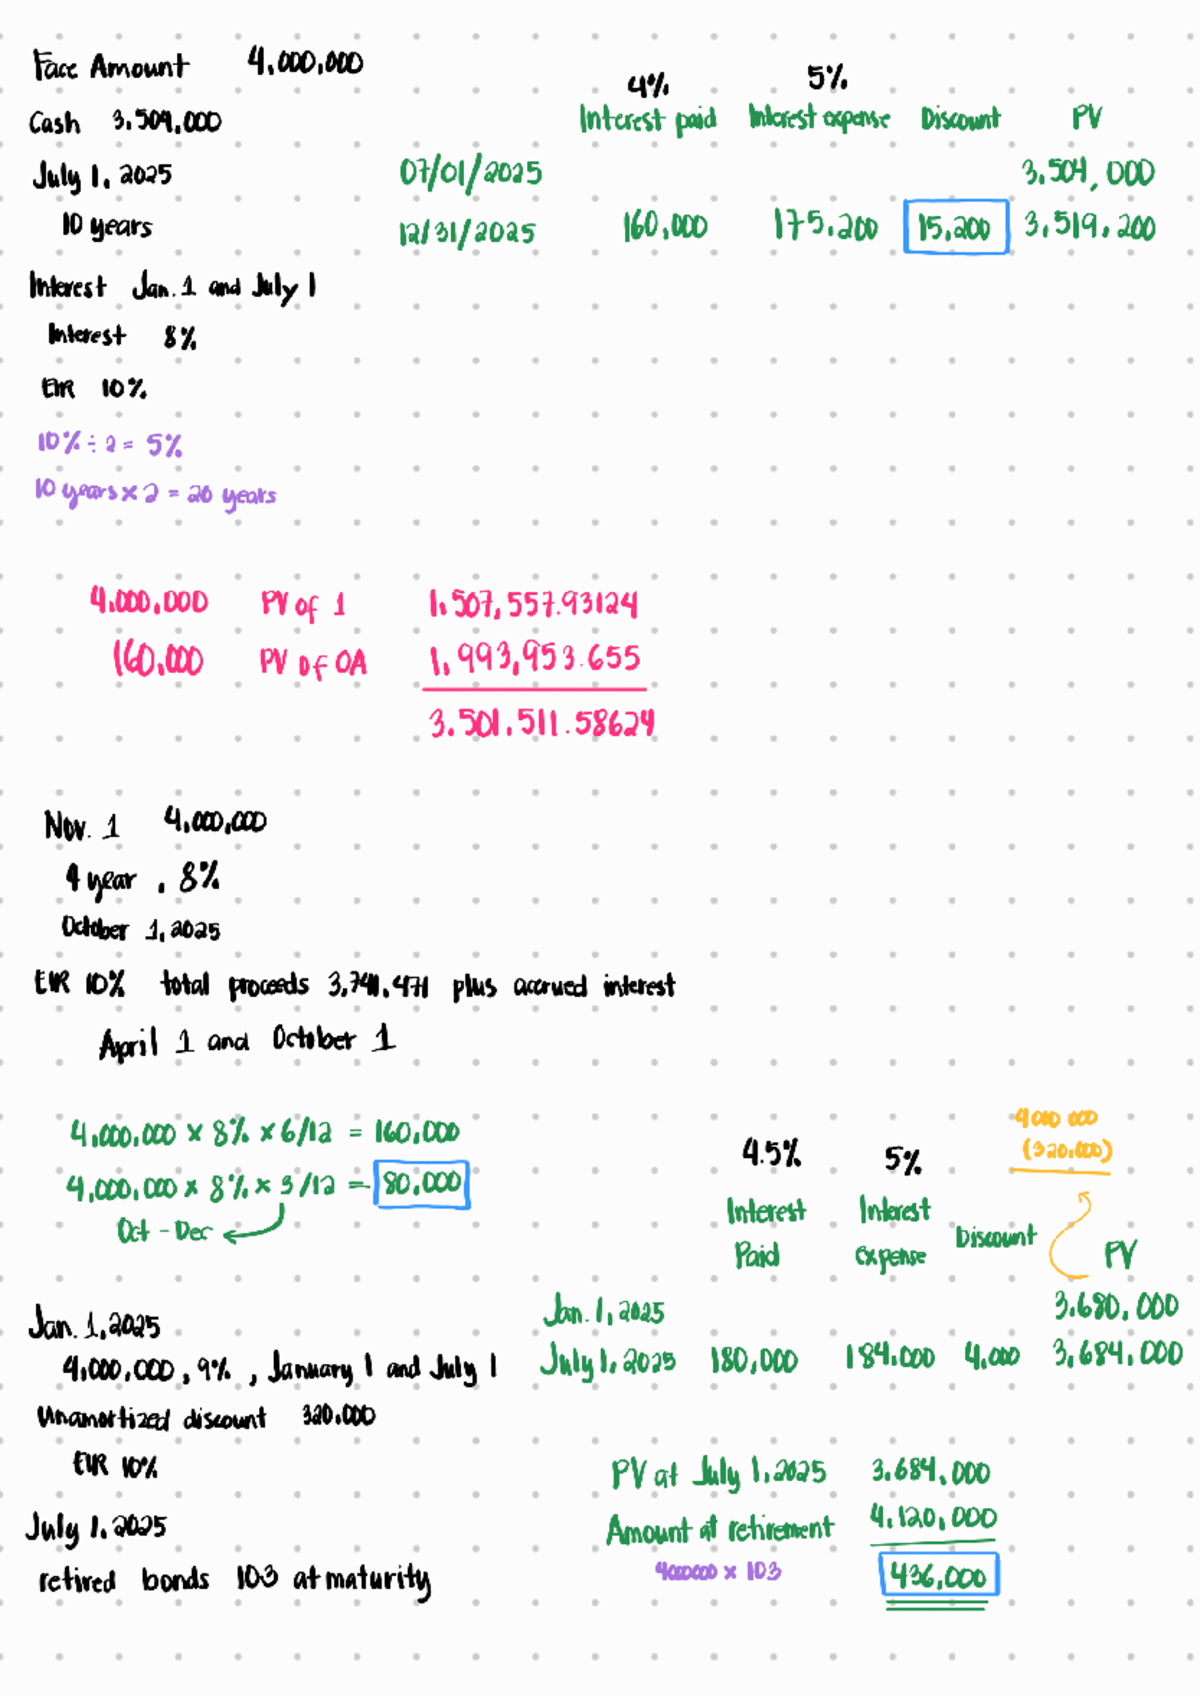 Face Amount 4,000,000
Cash 3,504,000
July 1, 2025
10 years
Interest Jan. 1 and July 1
Interest 8%
EIR 10%
10% ÷ 2 = 5%
10 years x 2 = 20 years
4% 5%
Interest paid Interest expense Discount PV
07/01/2025 3,504,000
12/31/2025 160,000 175,200 15,200 3,519,200
4,000,000 PV of 1 1,507,557.93124
160,000 PV of OA 1,993,953.655
3,501,511.58624
Nov. 1 4,000,000
4 year, 8%
October 1, 2025
EIR 10% total proceeds 3,741,471 plus accrued interest
April 1 and October 1
4,000,000 x 8% x 6/12 = 160,000
4,000,000 x 8% x 3/12 = 80,000
Oct - Dec
Jan. 1, 2025
4,000,000, 9%, January 1 and July 1
Unamortized discount 320,000
EIR 10%
July 1, 2025
retired bonds 103 at maturity
4000 000
(320,000)
4.5% 5%
Interest Paid Interest expense Discount PV
Jan. 1, 2025 3,680,000
July 1, 2025 180,000 184,000 4,000 3,684,000
PV at July 1, 2025 3,684,000
Amount at retirement 4,120,000
4000000 x 103 436,000